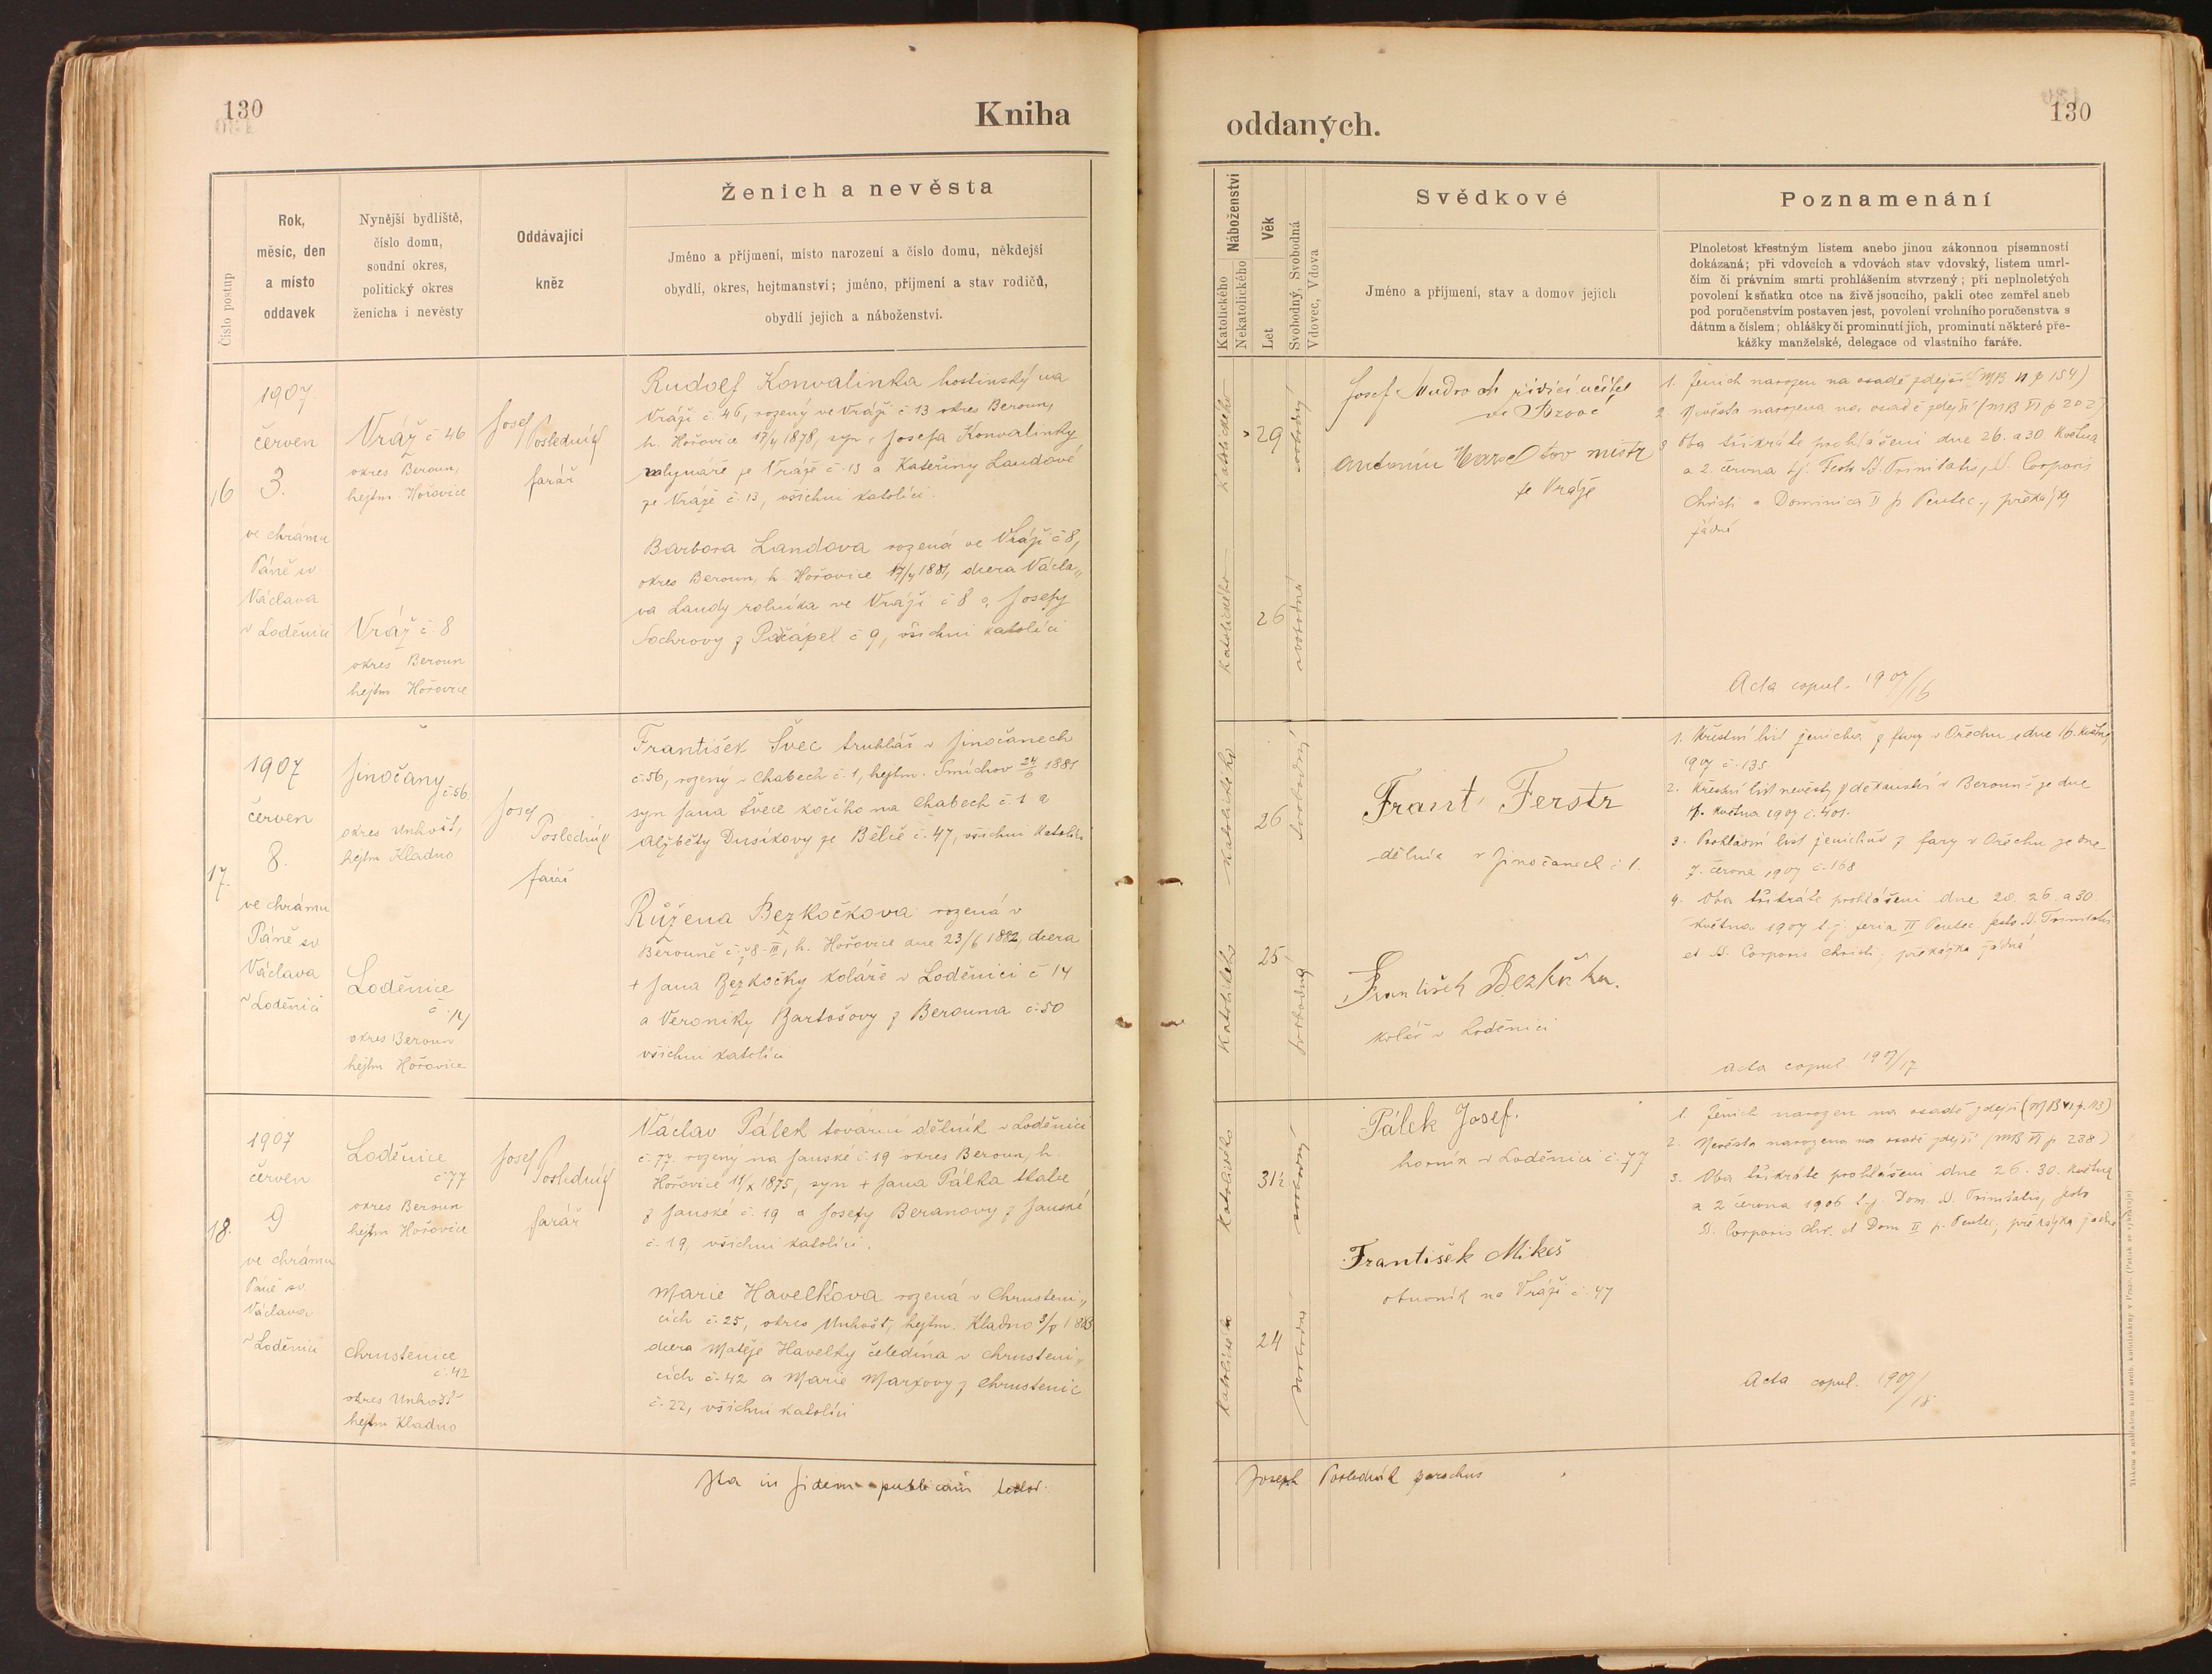 130
Kniha
Číslo postup
Rok,
měsíc, den
a místo
oddavek
Nynější bydliště,
číslo domu,
soudní okres,
politický okres
ženicha i nevěsty
Oddávající
kněz
Ženich a nevěsta
Jméno a příjmení, místo narození a číslo domu, někdejší
obydlí, okres, hejtmanství; jméno, příjmení a stav rodičů,
obydlí jejich a náboženství.
16
1907.
červen
3.
ve chrámu
Páně sv
Václava
v Loděnici
Vráž č 46
okres Beroun,
hejtm. Hořovice
Vráž č 8
okres Beroun
hejtm. Hořovice
Josef
Poslednký
farář
Rudolf Konvalinka hostinský na
Vráži č. 46, rozený ve Vráži č 13 okres Beroun,
h. Hořovice 17/4 1878, syn Josefa Konvalinky
mlynáře ze Vráže č. 13 a Kateřiny Landové
ze Vráže č. 13, všichni katolíci.
Barbora Landova rozená ve Vráži č 8,
okres Beroun, h. Hořovice 17/4 1881, dcera Václa„
va Landy rolníka ve Vráži č 8 a Josefy
Sochrovy z Počápel č 9, všichni katolíci
17.
1907
červen
8.
ve chrámu
Páně sv
Václava
v Loděnici
Jinočany
č 56.
okres Unhošt,
hejtm Kladno
Loděnice
č 14
okres Beroun
hejtm Hořovice
Josef
Poslednký
farář
František Švec truhlář v Jinočanech
č. 56, rozený v Chabech č. 1, hejtm. Smíchov 24/6 1881
syn Jana Švece kočího na Chabech č. 1 a
Alžběty Dusíkovy ze Bělče č. 47, všichni katolíci
Růžena Bezkočkova rozená v
Berouně č. 78-III, h. Hořovice dne 23/6 1882, dcera
+ Jana Bezkočky koláře v Loděnici č 14
a Veroniky Bartošovy z Berouna č 50
všichni katolíci
18.
1907
červen
9
ve chrámu
Páně sv.
Václava
v Loděnici
Loděnice
č 77
okres Beroun
hejtm Hořovice
Chrustenice
č. 42
okres Unhošť
hejtm Kladno
Josef
Poslednký
farář
Václav Pálek tovární dělník v Loděnici
č. 77. rozený na Janské č. 19 okres Beroun, h.
Hořovice 11/X 1875, syn + Jana Pálka tkalce
z Janské č. 19 a Josefy Beranovy z Janské
č. 19, všichni katolíci.
Marie Havelkova rozená v Chrusteni„
cích č. 25, okres Unhošt, hejtm. Kladno 3/8 1883
dcera Matěje Havelky čeledína v Chrusteni„
cích č. 42 a Marie Marxovy z Chrustenic
č. 22, všichni katolíci
Ita in fidem publicam testor.
oddaných.
130
Náboženství
Katolického
Nekatolického
Věk
Let
Svobodný, Svobodná
Vdovec, Vdova
Svědkové
Jméno a příjmení, stav a domov jejich
Poznamenání
Plnoletost křestným listem anebo jinou zákonnou písemností
dokázaná; při vdovcích a vdovách stav vdovský, listem umrl-
čím či právním smrti prohlášením stvrzený; při neplnoletých
povolení k sňatku otce na živě jsoucího, pakli otec zemřel aneb
pod poručenstvím postaven jest, povolení vrchního poručenstva s
dátum a číslem; ohlášky či prominutí jich, prominutí některé pře-
kážky manželské, delegace od vlastního faráře.
Katolického
29
svobodný
Katolického
26
svobodná
Josef řídící učitel
Antonín mistr
ze Vráže
1. Ženich narozen na osadě zdejší (MB VI p 154)
2. Nevěsta narozena na osadě zdejší (MB VI p 202)
3 Oba třikráte prohlášeni dne 26. a 30. května
a 2. června tj. Festo SS. Trinitatis, D. Corporis
Christi a Dominica II p Pentec., překážka
žádná
Acta copul. 1907/16
Katolického
26
svobodný
Katolického
25
svobodná
Frant. Ferstr
dělník v Jinočanech č 1.
František Bezkočka.
kolář v Loděnici
1. Křestní list ženichův z fary v Ořechu ze dne 16. května
1907 č. 135
2. Křestní list nevěsty z děkanství v Berouně ze dne
května 1907 č. 401.
3. Prohlášní list ženichův z fary v Ořechu ze dne
7. června 1907 č. 168
4. Oba třikráte prohlášeni dne 20. 26. a 30.
května 1907 t. j. feria II Pentec. festo SS. Trinitatis
et D. Corporis Christi; překážka žádná
Acta copul 1907/17
Katolického
31½
svobodný
Katolického
24
svobodná
Pálek Josef.
horník v Loděnici č. 77
František Mikeš
obuvník na Vráži č. 47
1. Ženich narozen na osadě zdejší (MB VI p. 113)
2. Nevěsta narozena na osadě zdejší (MB VI p 238)
3. Oba třikráte prohlášeni dne 26. 30. května
a 2 června 1906 t.j. Dom. SS. Trinitatis, festo
D. Corporis Chr. et Dom II p. Pentec; překážka žádná
Acta copul. 1907/18
Joseph Poslednký parochus